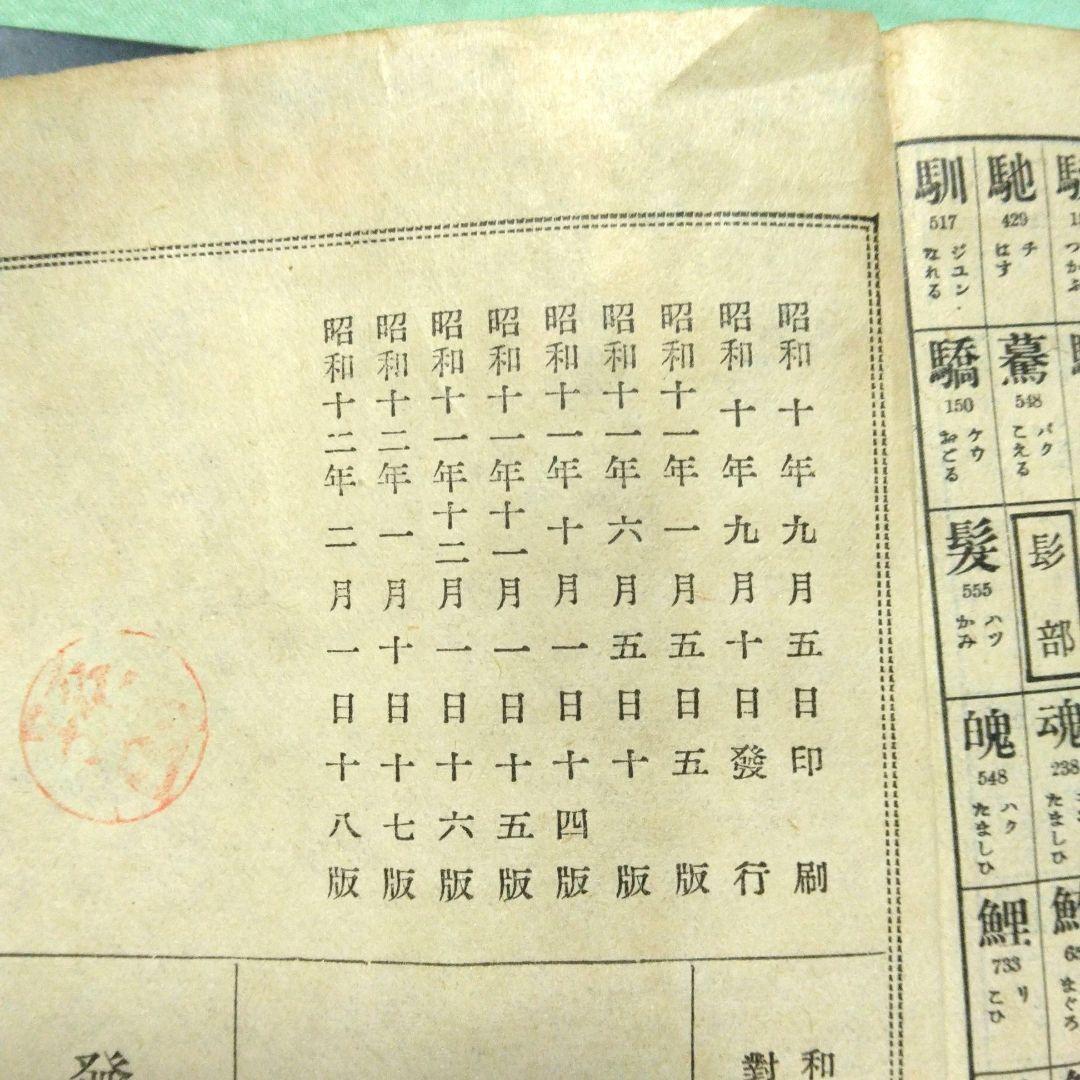 馴
517
ジユン・
なれる
馳
429
チ
はす
驕
150
ケウ
おどる
驀
548
バク
こえる
髟部
髮
555
ハツ
かみ
魂
238
たましひ
魄
548
ハク
たましひ
鯉
733
リ
こひ
まぐろ
昭和十年九月五日印刷
昭和十年九月十日發行
昭和十一年一月五日五版
昭和十一年六月五日十版
昭和十一年十月一日十四版
昭和十一年十一月一日十五版
昭和十一年十二月一日十六版
昭和十二年一月十日十七版
昭和十二年二月一日十八版
和
對
發